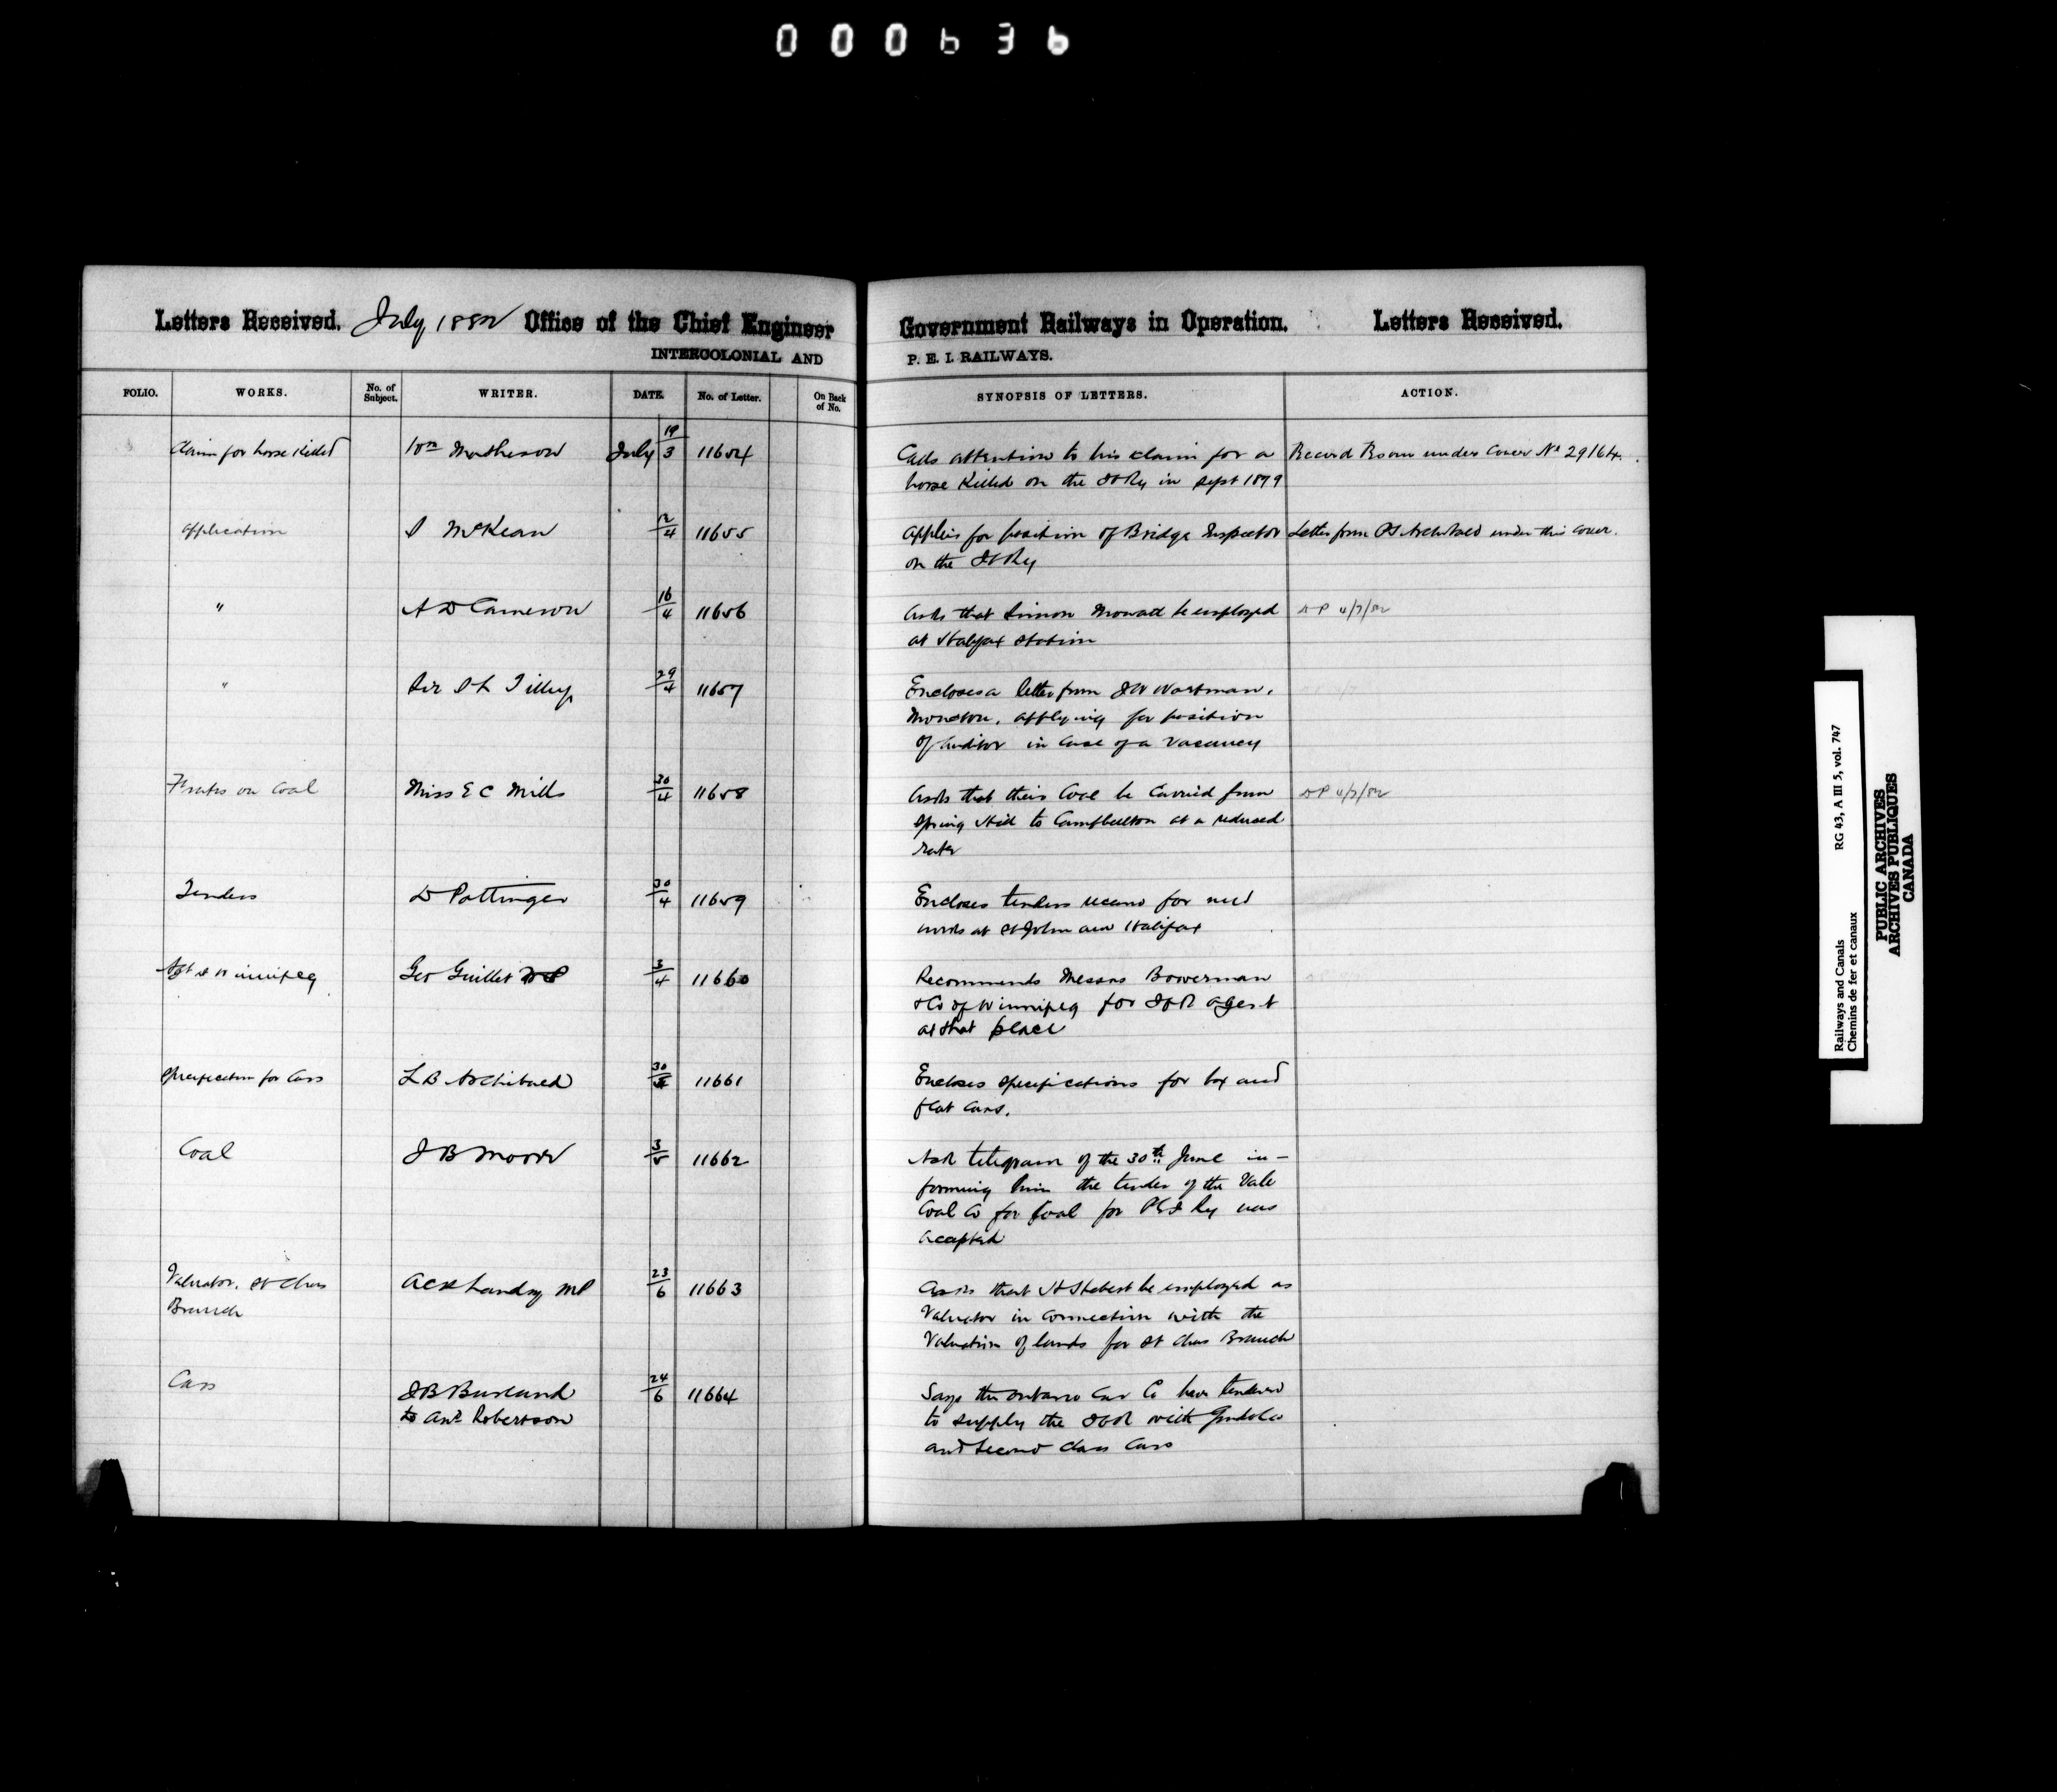 000636
Letters Received. July 1882 Office of the Chief Engineer
INTERCOLONIAL AND
Government Railways in Operation. Letters Received.
P. E. I. RAILWAYS.
FOLIO. WORKS. No. of Subject. WRITER. DATE. No. of Letter. On Back of No. SYNOPSIS OF LETTERS. ACTION.
Claim for horse killed Wm Matheson July 19/3 11654 Calls attention to his claim for a Record Room under Cover No 29164.
horse killed on the I C Ry in Sept 1879
Application McKean 12/4 11655 Applies for position of Bridge Inspector Letter from PS Archibald under this cover.
on the I C Ry
" A D Cameron 16/4 11656 Asks that Simon Mowatt be employed DP 4/7/82
at Halifax Station
" Sir S L Tilley 29/4 11657 Encloses a letter from J W Wortman,
Moncton, applying for position
of Auditor in case of a vacancy
on Coal Miss E C Mills 30/4 11658 Asks that their Coal be carried from DP 4/7/82
Spring Hill to Campbellton at a reduced
rate
Tenders D Pottinger 30/4 11659 Encloses tenders for
works at St John and Halifax
Agt at Winnipeg Geo Guillet MP 3/4 11660 Recommends Messrs Bowerman
& Co of Winnipeg for I C R agent
at that place
Specification for Cars L B Archibald 30/ 11661 Encloses specifications for box and
flat cars.
Coal J B Moore 3/5 11662 Ack telegram of the 30th June in-
forming him the tender of the Vale
Coal Co for Coal for P E I Ry was
accepted
Valuator. St Chas A C P Landry MP 23/6 11663 Asks that H Hebert be employed as
Branch Valuator in connection with the
Valuation of lands for St Chas Branch
Cars J B Burland 24/6 11664 Says the Ontario Car Co have tendered
to And. Robertson to supply the I C R with Gondola
and Second Class Cars
Railways and Canals RG 43, A III 5, vol. 747
Chemins de fer et canaux
PUBLIC ARCHIVES
ARCHIVES PUBLIQUES
CANADA